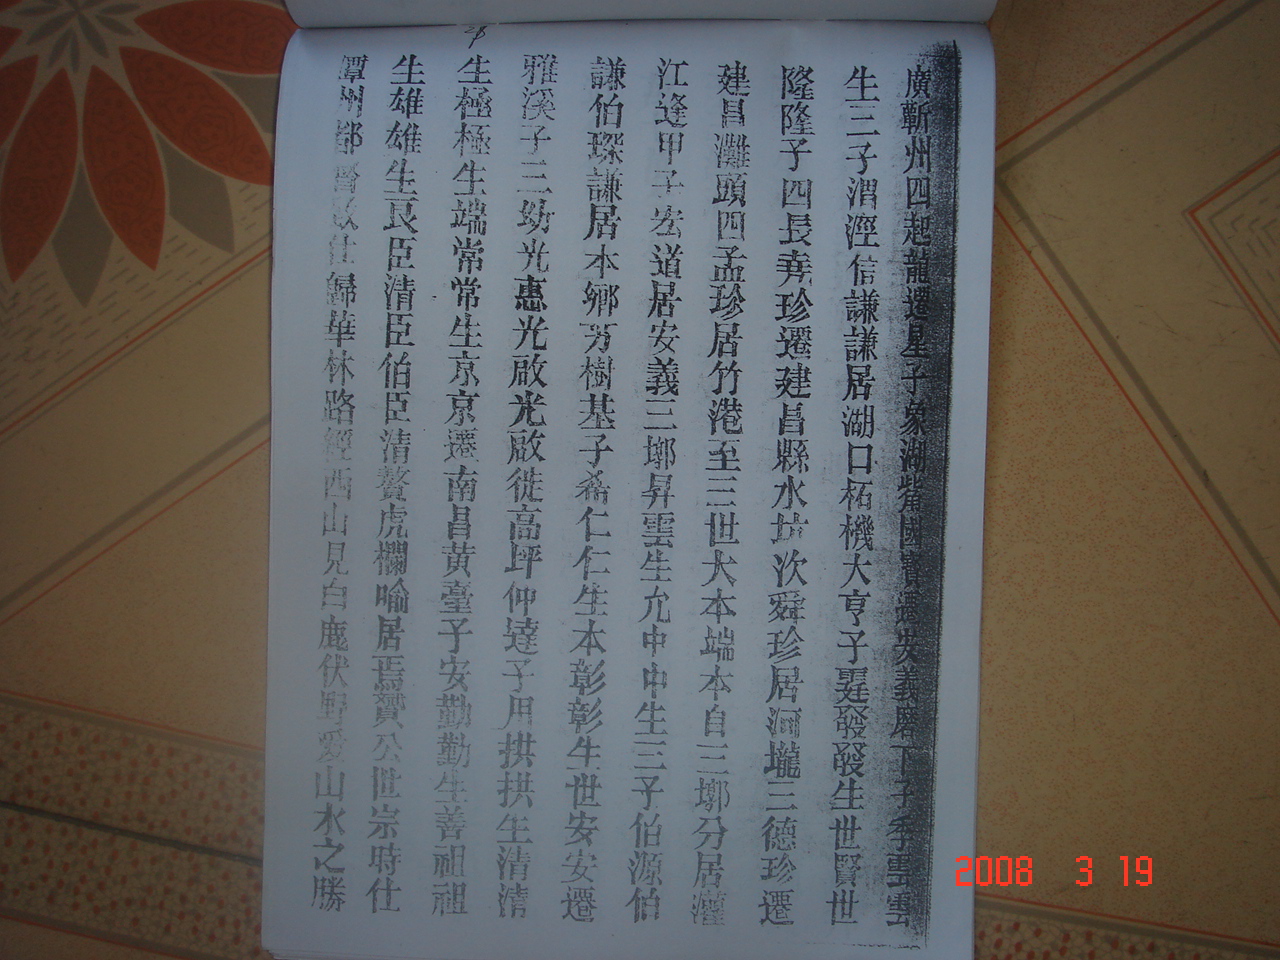 廣蘄州四起龍遷星子象湖觜國寶遷安義磨下子季雲雲
生三子渭溼信謙謙居湖口柘機大亨子霆發發生世賢世
隆隆子四長堯珍遷建昌縣水坑次舜珍居洞壠三德珍遷
建昌灘頭四孟珍居竹港至三世大本端本自三墎分居灌
江逢甲子宏道居安義三墎昇雲生允中中生三子伯源伯
謙伯琛謙居本鄉芳樹基子希仁仁生本彰彰生世安安遷
雅溪子三幼光惠光啟光啟徙高坪仲達子用拱拱生清清
生極極生端常常生京京遷南昌黃臺子安勤勤生善祖祖
生雄雄生良臣清臣伯臣清贅虎欄喻居焉贇公世宗時仕
潭州都 致仕歸華林路經西山見白鹿伏野愛山水之勝
2008 3 19